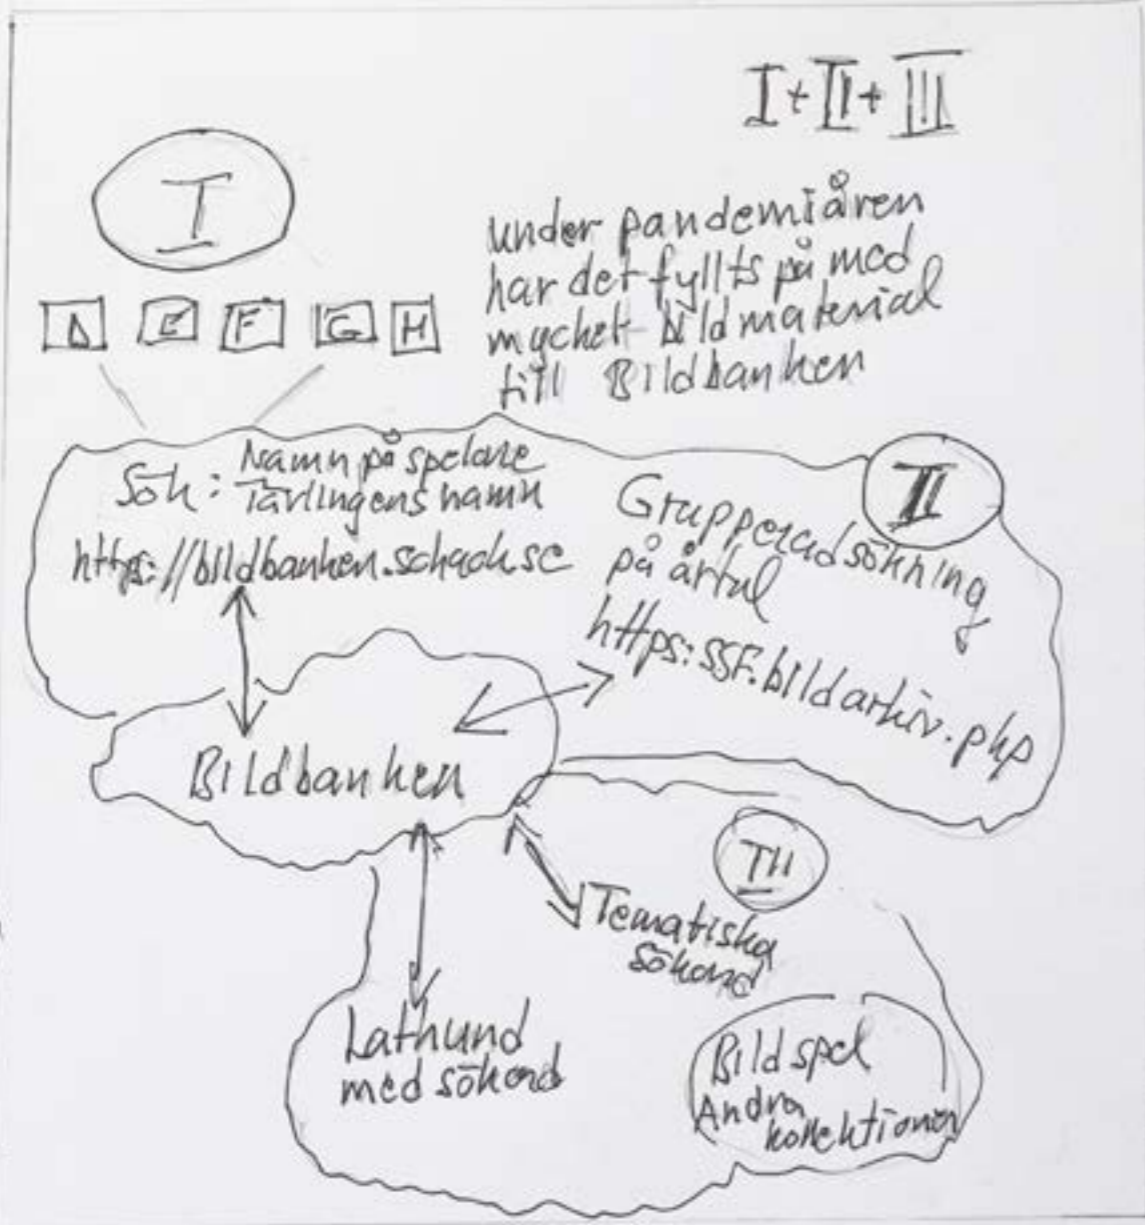 I + II + III
I
under pandemiåren
har det fyllts på med
mycket bildmaterial
till Bildbanken
E F G H
Sök: Namn på spelare
Tävlingens namn
https://bildbanken.schack.se
II
Grupperad sökning
på årtal
https:SSF.bildarkiv.php
Bildbanken
III
Tematiska
sökord
Lathund
med sökord
Bildspel
Andra
kollektioner